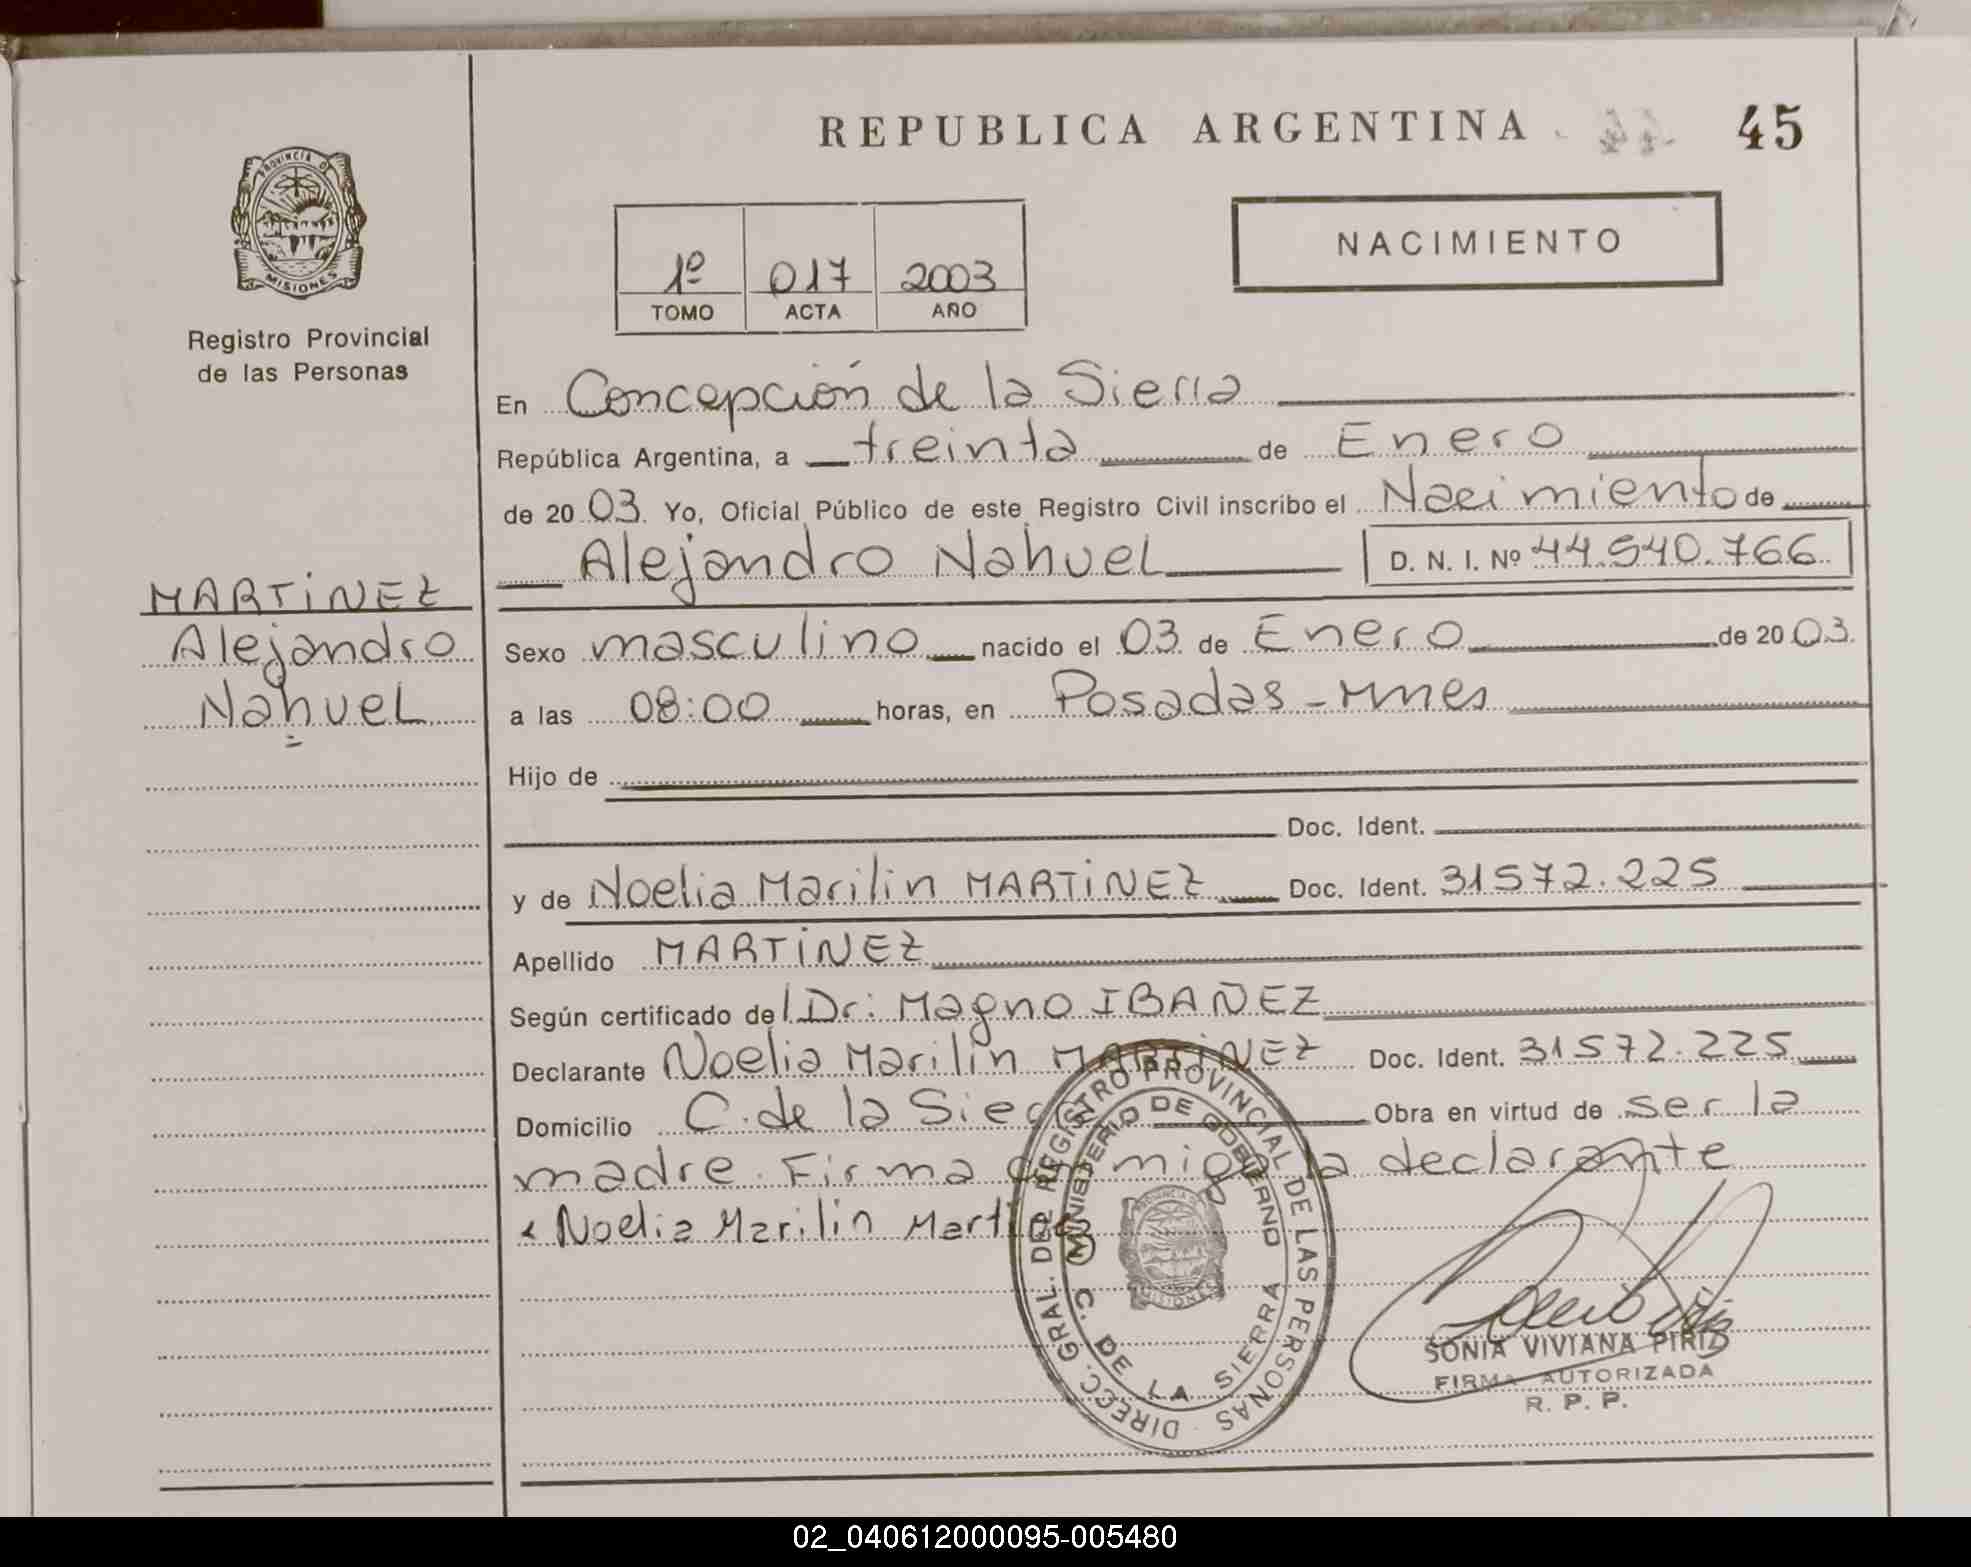 REPUBLICA ARGENTINA
45
PROVINCIA DE
MISIONES
Registro Provincial
de las Personas
1º 017 2003
TOMO ACTA AÑO
NACIMIENTO
En Concepción de la Sierra
República Argentina, a treinta de Enero
de 2003. Yo, Oficial Público de este Registro Civil inscribo el Nacimiento de
Alejandro Nahuel D. N. I. Nº 44.540.766
MARTINEZ
Alejandro
Nahuel
Sexo masculino nacido el 03 de Enero de 2003.
a las 08:00 horas, en Posadas - Mnes
Hijo de
Doc. Ident.
y de Noelia Marilin MARTINEZ Doc. Ident. 31572.225
Apellido MARTINEZ
Según certificado del Dr: Magno IBAÑEZ
Declarante Noelia Marilin MARTINEZ Doc. Ident. 31572.225
Domicilio C. de la Sierra Obra en virtud de ser la
madre. Firma conmigo la declarante
Noelia Marilin Martinez
DIRECC. GRAL. DEL REGISTRO PROVINCIAL DE LAS PERSONAS
MINISTERIO DE GOBIERNO
C. DE LA SIERRA
PROVINCIA DE
MISIONES
SONIA VIVIANA PIRIZ
FIRMA AUTORIZADA
R. P. P.
02_040612000095-005480